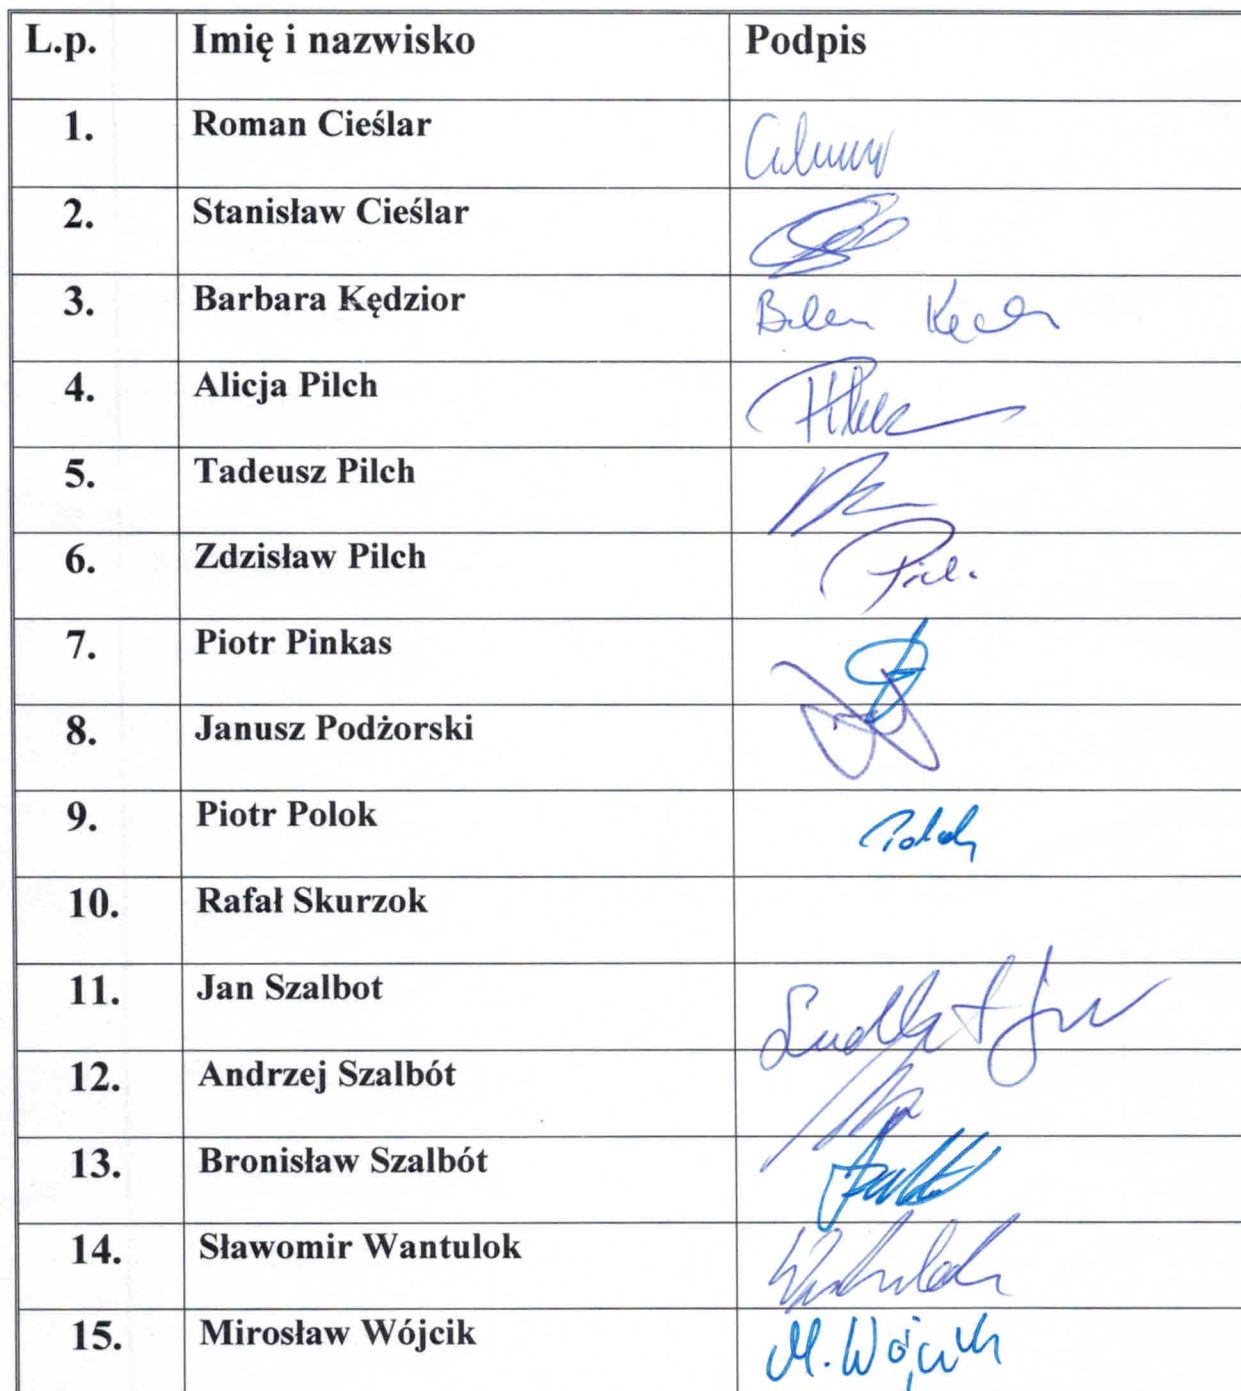 L.p. Imię i nazwisko Podpis
1. Roman Cieślar
2. Stanisław Cieślar
3. Barbara Kędzior
4. Alicja Pilch
5. Tadeusz Pilch
6. Zdzisław Pilch
7. Piotr Pinkas
8. Janusz Podżorski
9. Piotr Polok
10. Rafał Skurzok
11. Jan Szalbot
12. Andrzej Szalbót
13. Bronisław Szalbót
14. Sławomir Wantulok
15. Mirosław Wójcik M. Wójcik